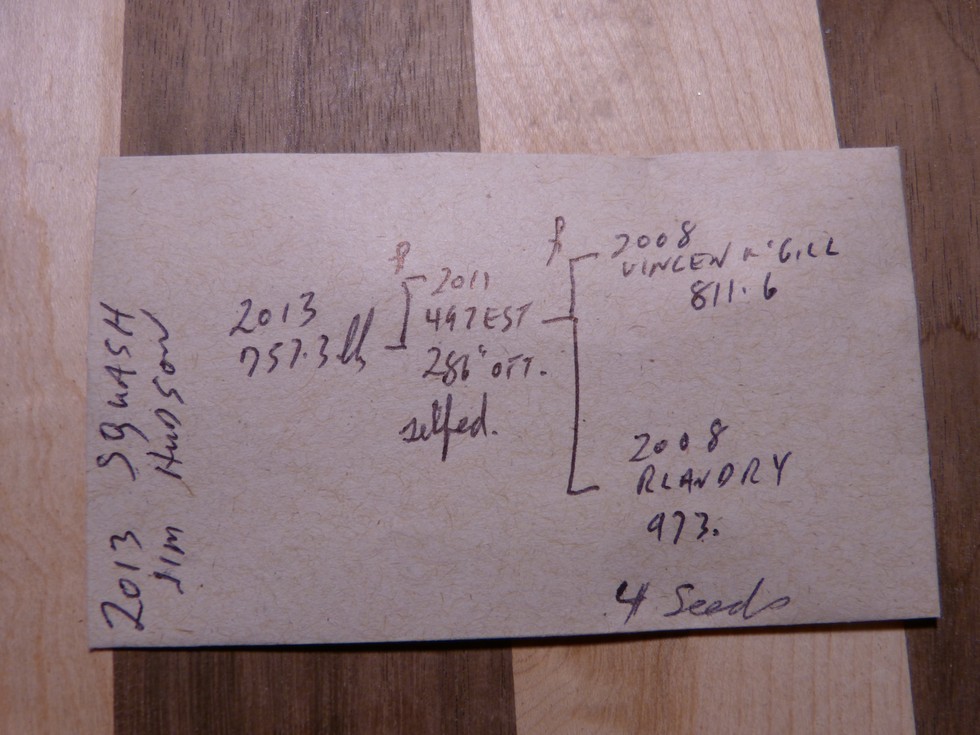 2013 SQUASH
JIM HUDSON
2013
757.3 lbs
2011
497 EST
286" OTT.
selfed.
2008
VINCEN McGILL
811.6
2008
RLANDRY
973.
4 Seeds